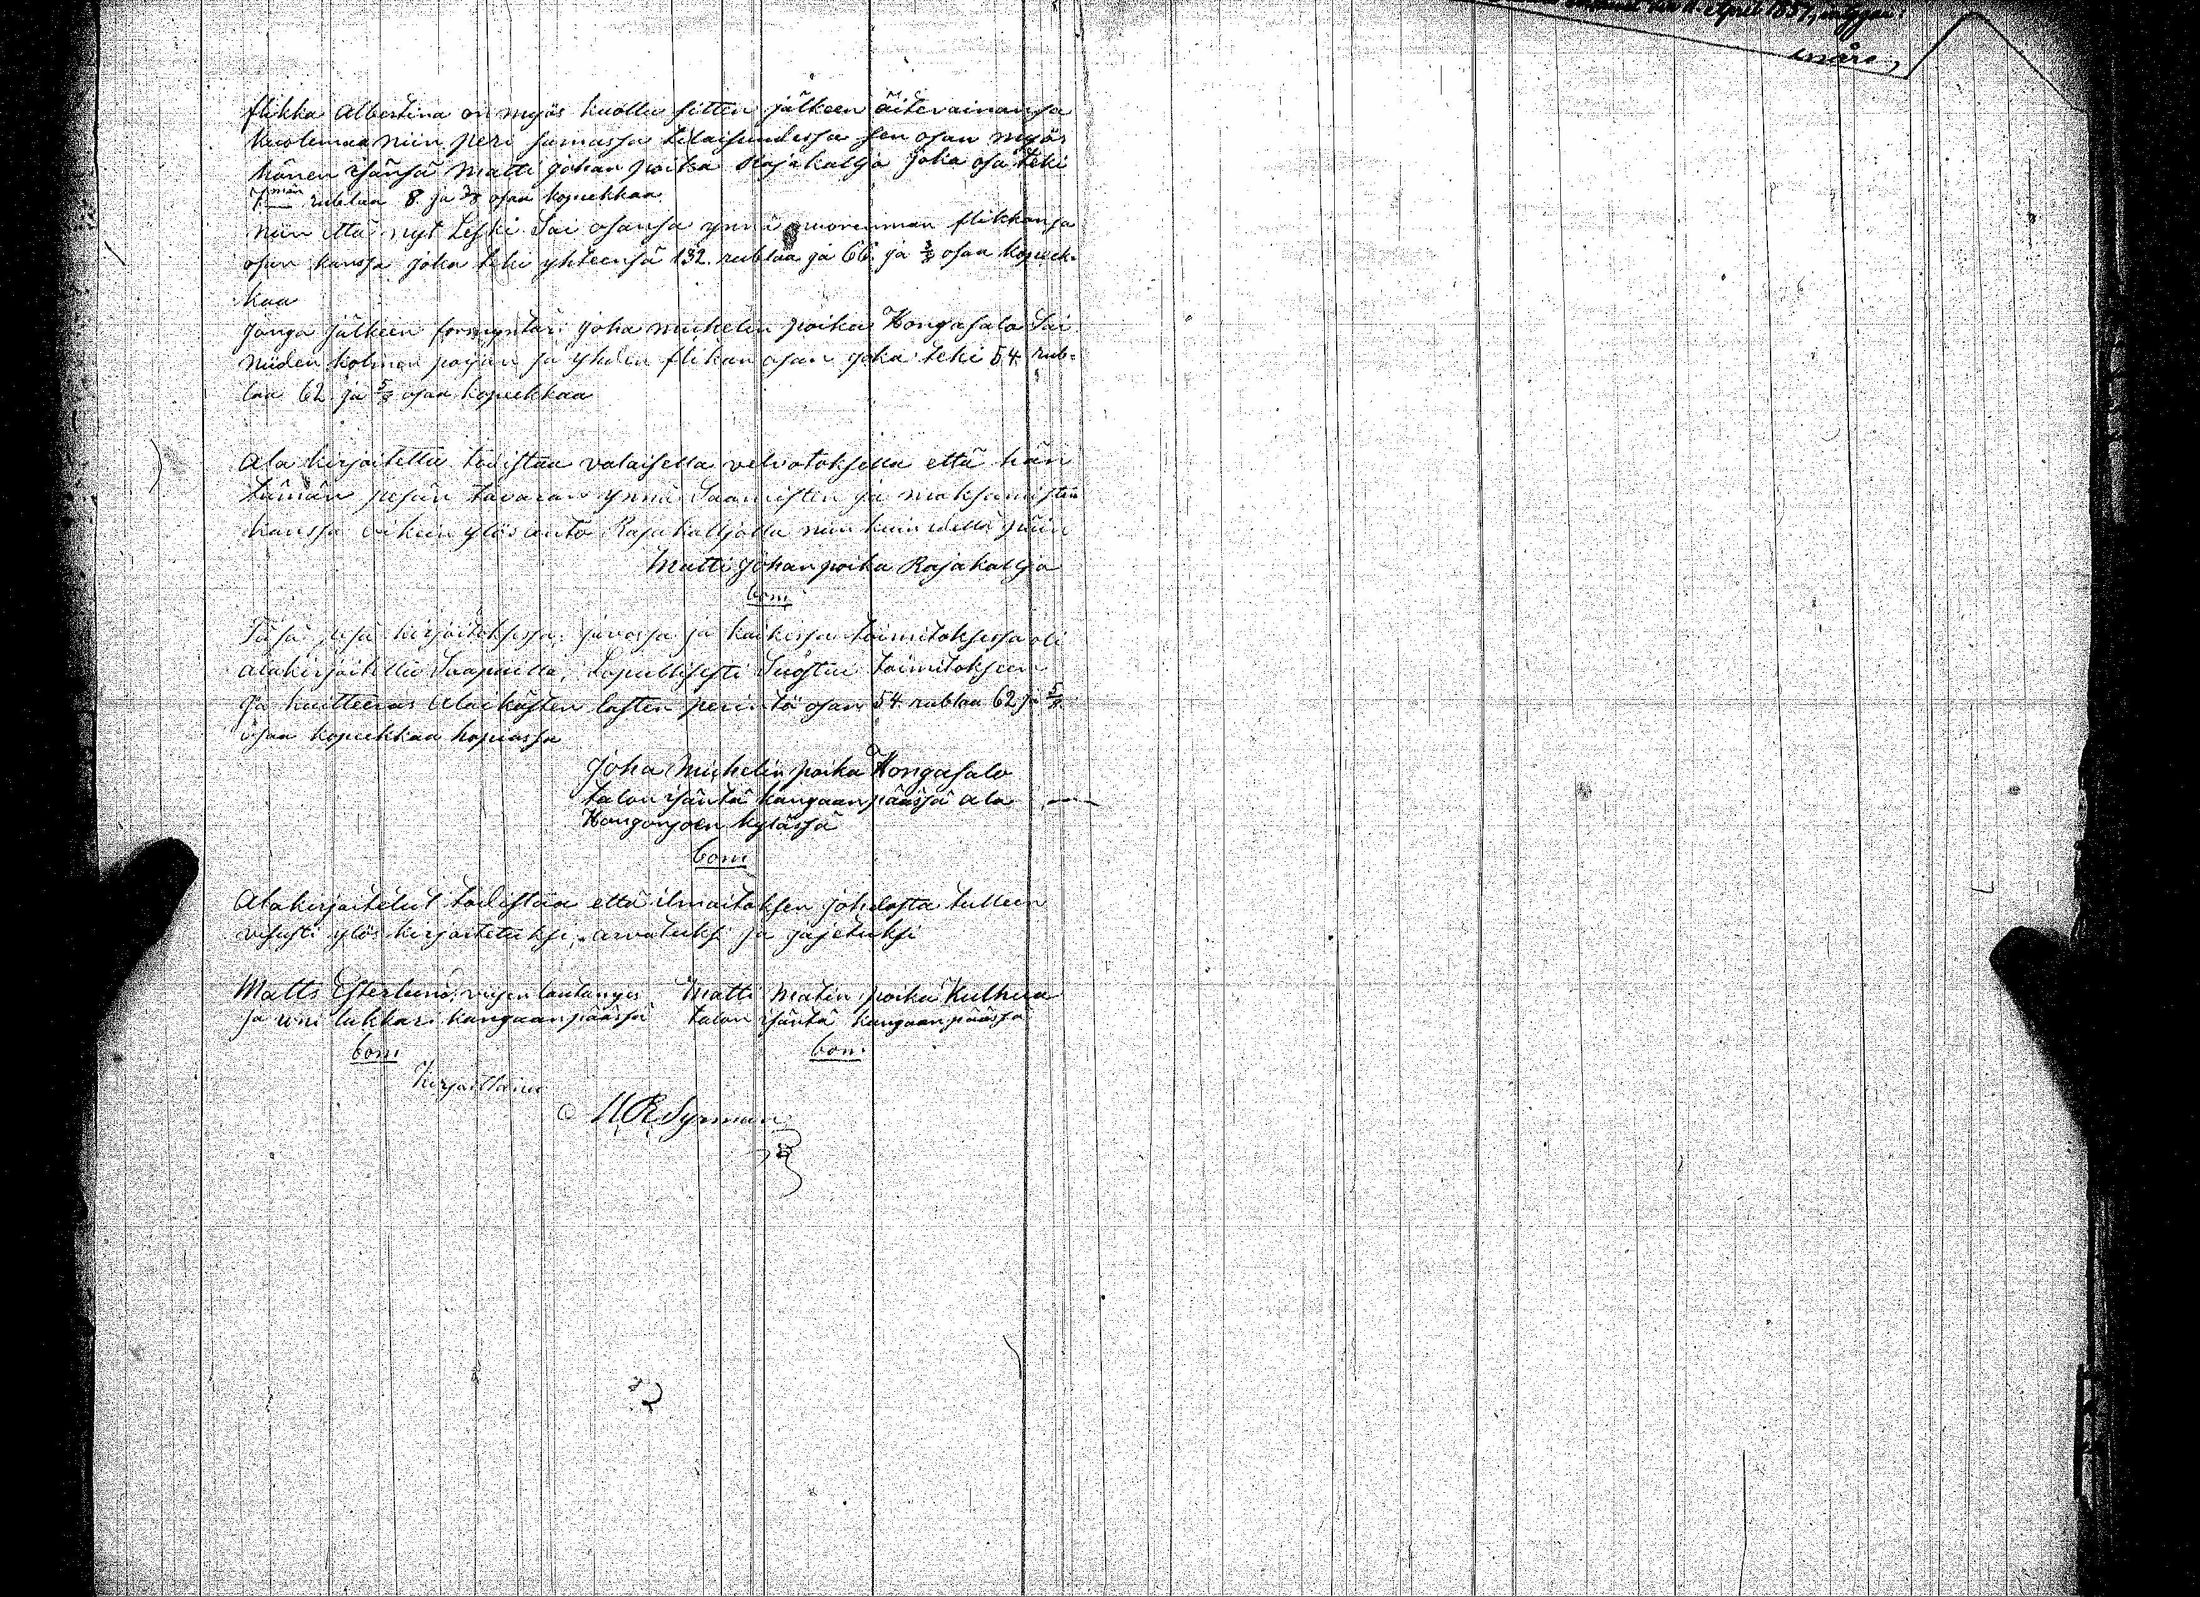 April 1857,
flikka Albertina on myös kuollu sitten jälkeen äitevainansa
kuoleman niin peri samassa tilaisundessa sen osan myös
hänen isänsä Matti Johan poika Rajakallja joka osa teki
7män rublaa 8 ja 3/8 osaa kopeekkaa
niin että nyt Leski Sai osansa ynnä nuoremman flikkansa
osan kanssa joka teki yhteensä 132. rublaa ja 66 ja 3/8 osaa kopeek-
kaa
Jonga jälkeen formyntäri Joha Michelin poika Hongasalo Sai
niiden kolmen pojan ja yhden flikan osan joka teki 54 rub-
laa 62 ja 5/8 osaa kopeekkaa
Ala kirjoitettu todistaa valaisella velvotoksella että hän
tämän pesän tavaran ynnä Saamisten ja maksamisten
kanssa oikein ylösanto Rajakalljolla niin kuin edellä päin
Matti Johan poika Rajakallja
bom
Täsä pesä kirjoitoksessa, jaossa ja kaikissa toimitoksessa oli
alakirjoitettu Saapuilla, Lopullisesti Suostuu toimitokseen
Ja kuitteeraa Alaikästen lasten perintö osan 54 rublaa 62 ja 5/8
osaa kopeekkaa hopiassa
Joha Michelin poika Hongasalo
talon isäntä kangaanpäässä ala
Hongonjoen kylässä
bom
Alakirjoitetut todistaa että ilmoitoksen johdosta tulleen
visusti ylös kirjoitetuksi, arvatuksi ja jajetuksi
Matts Esterlund, lautanges Matti Matin poika Kulhua
ja uni lukkari kangaanpäässä talon isäntä kangaanpäässä
bom bom
Kirjoittanu